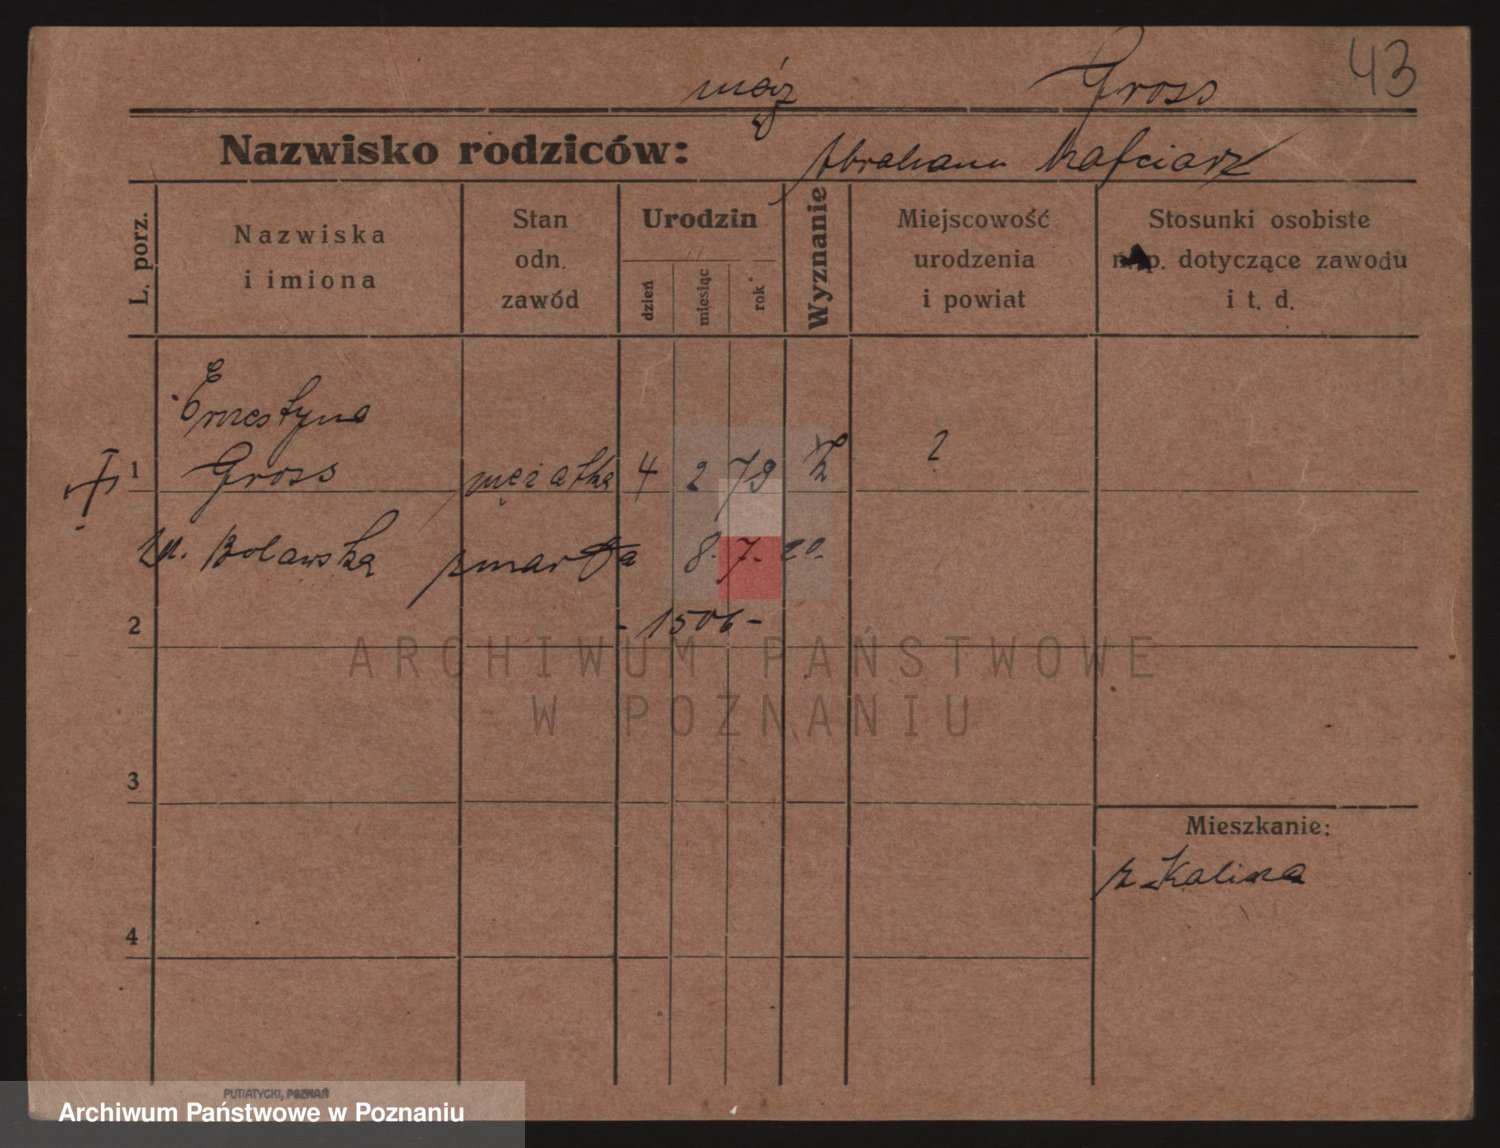 43
mąż Gross
Nazwisko rodziców: Abraham Hafciarz
L. porz.
Nazwiska
i imiona
Stan
odn.
zawód
Urodzin
dzień
miesiąc
rok
Wyznanie
Miejscowość
urodzenia
i powiat
Stosunki osobiste
np. dotyczące zawodu
i t. d.
Ernestyna
1 Gross mężatka 4 2 79 ż ?
Bolawska zmarła 8. 7. 20.
2 - 1506 -
ARCHIWUM PAŃSTWOWE
W POZNANIU
3
Mieszkanie:
z Kalisza
4
PUTIATYCKI, POZNAŃ
Archiwum Państwowe w Poznaniu